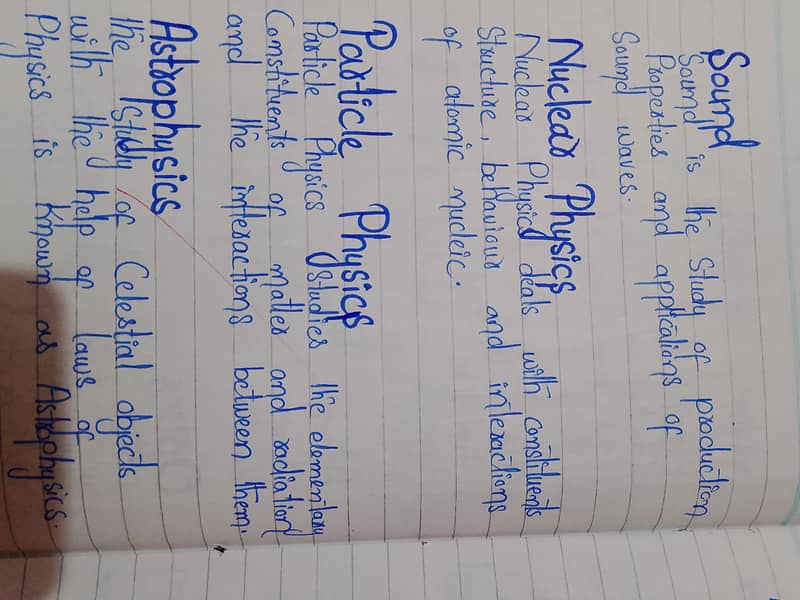 Sound
Sound is the Study of production
Properties and applications of
Sound waves.
Nuclear Physics
Nuclear Physics deals with constituents
Structure, behaviour and interactions
of atomic nucleic.
Particle Physics
Particle Physics Studies the elementary
Constituents of matter and radiation
and the interactions between them.
Astrophysics
The Study of Celestial objects
with the help of laws of
Physics is Known as Astrophysics.